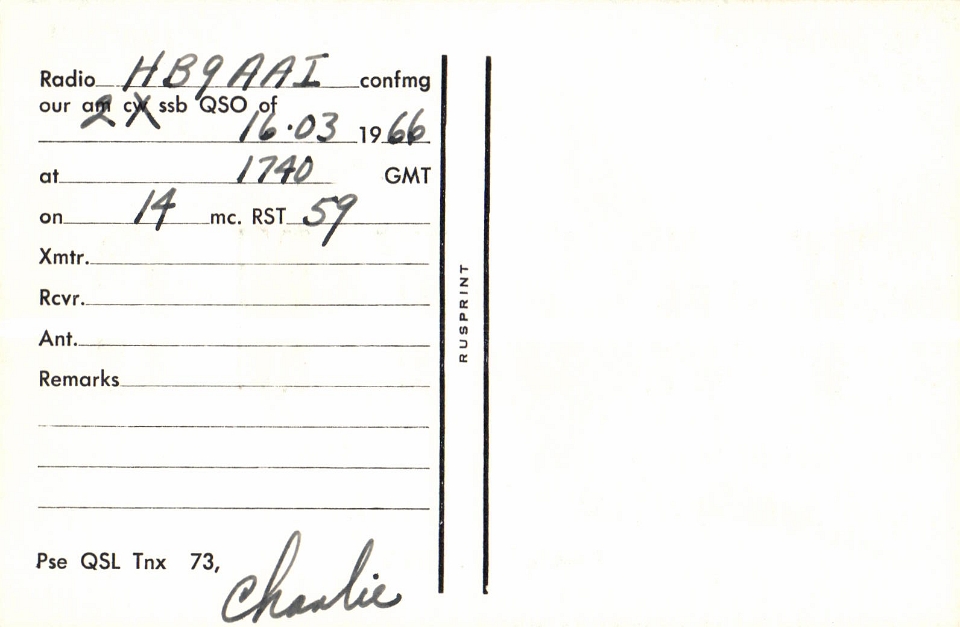 Radio HB9AAI confmg
our am cw ssb QSO of
2X 16.03 1966
at 1740 GMT
on 14 mc. RST 59
Xmtr.
Rcvr.
Ant.
Remarks
Pse QSL Tnx 73,
Charlie
RUSPRINT